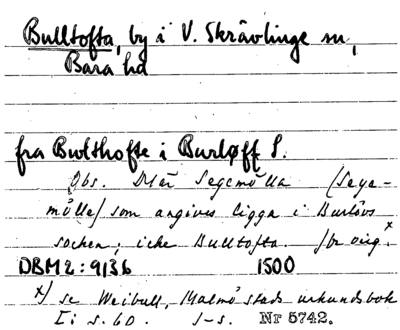 Bulltofta, by i V. Skrävlinge sn,
Bara hd
fra Bulthofte i Burløff S.
Obs. Det är Segemölla (Sege-
mölle) som angives ligga i Burlövs
socken; icke Bulltofta. x
DBM 2: 9/36 1500
x) se Weibull, Malmö stads urkundsbok
I: s. 60. J-s. Nr 5742.